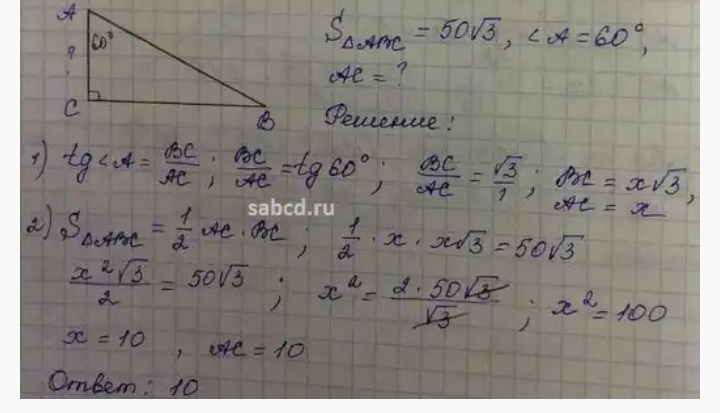 A
60°
?
C
B
S△ABC = 50√3, <A = 60°,
AC = ?
Решение:
1) tg<A = BC/AC; BC/AC = tg60°; BC/AC = √3/1; BC = x√3,
AC = x
sabcd.ru
2) S△ABC = 1/2 AC · BC; 1/2 · x · x√3 = 50√3
x²√3/2 = 50√3; x² = 2·50√3/√3; x² = 100
x = 10, AC = 10
Ответ: 10